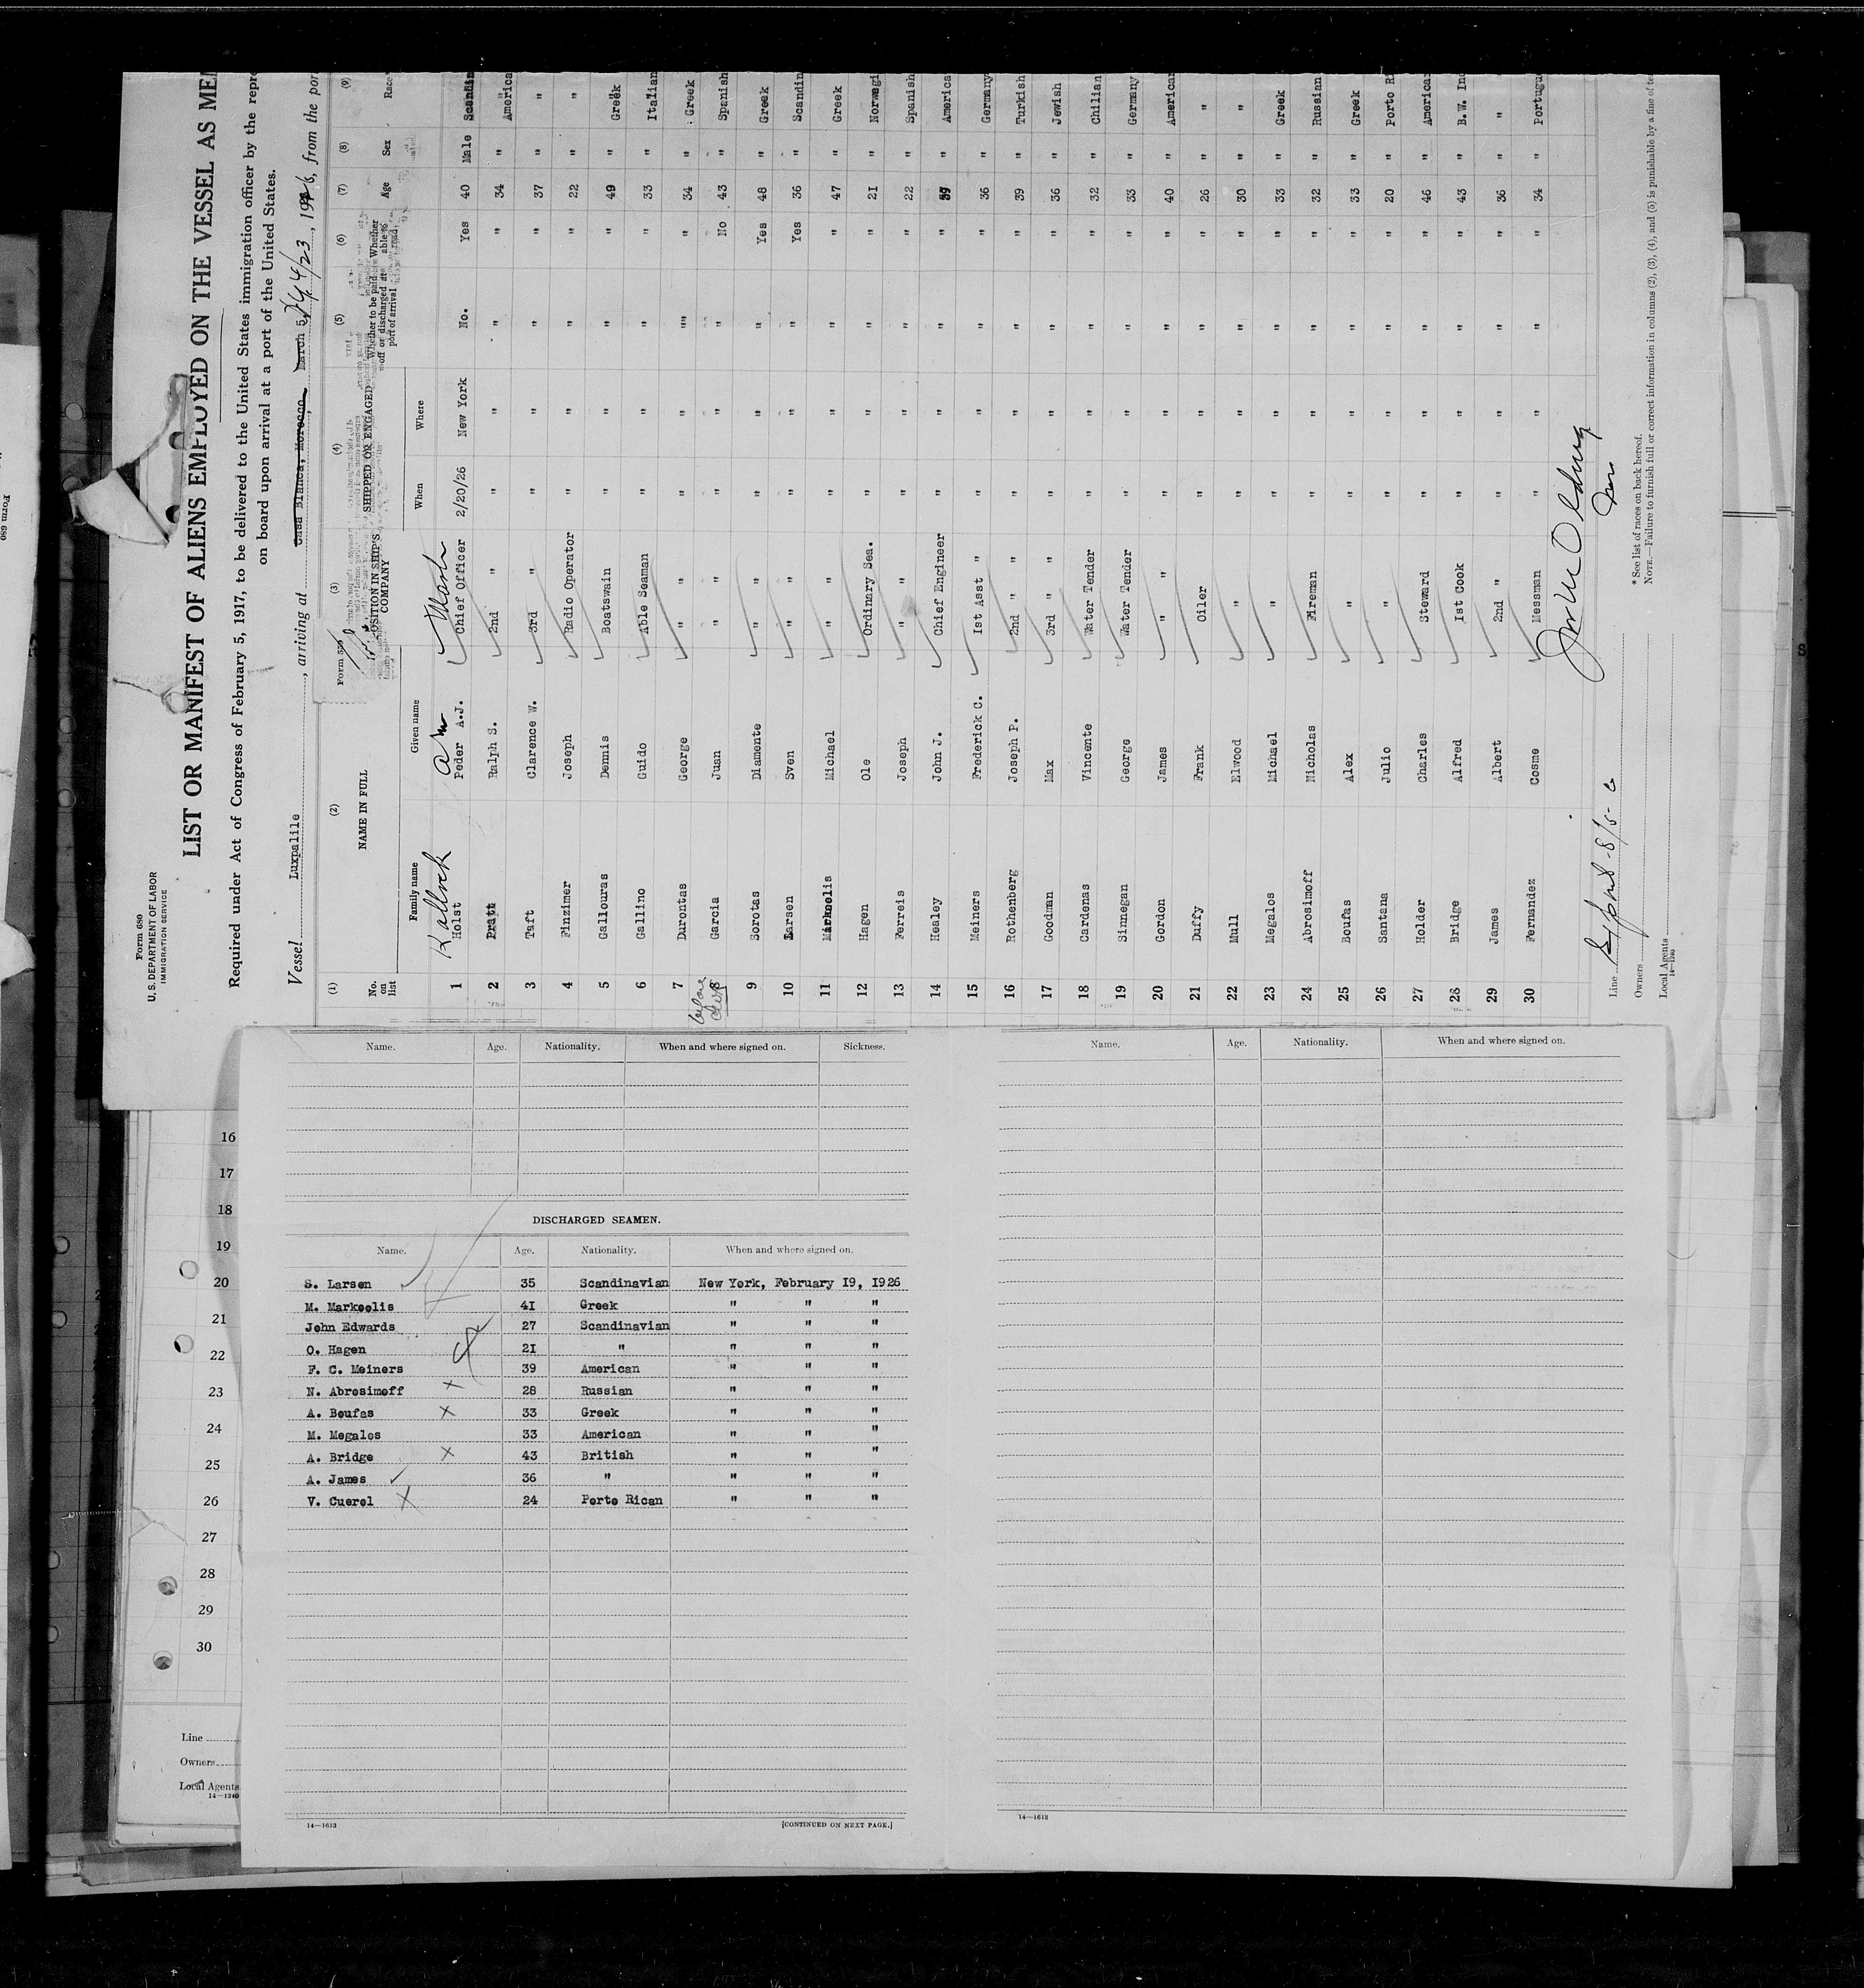 Form 680
U. S. DEPARTMENT OF LABOR
IMMIGRATION SERVICE
LIST OR MANIFEST OF ALIENS EMPLOYED ON THE VESSEL AS MEM
Required under Act of Congress of February 5, 1917, to be delivered to the United States immigration officer by the repre
on board upon arrival at a port of the United States.
Vessel Luxpalile , arriving at Casa Blanca, Morocco, March 5, 4/23, 1926, from the por
(1) (2) (3) (4) (5) (6) (7) (8) (9)
No. on list NAME IN FULL POSITION IN SHIP'S COMPANY SHIPPED OR ENGAGED Whether to be paid off or discharged at port of arrival Whether able to read Age Sex Race*
Family name Given name When Where
1 Holst Peder A.J. Chief Officer 2/20/26 New York No. Yes 40 Male Scandin
2 Pratt Ralph S. 2nd " " " " " 34 " America
3 Taft Clarence W. 3rd " " " " 37 " "
4 Finzimer Joseph Radio Operator " " " " 22 " "
5 Gallouras Dennis Boatswain " " " " 49 " Greek
6 Gallino Guido Able Seaman " " " " 33 " Italian
7 Durontas George " " " " " " 34 " Greek
8 Garcia Juan " " " " " No 43 " Spanish
9 Sorotas Diamente " " " " " Yes 48 " Greek
10 Larsen Sven " " " " " Yes 36 " Scandin
11 Markoelis Michael " " " " " " 47 " Greek
12 Hagen Ole Ordinary Sea. " " " " 21 " Norwegi
13 Ferreis Joseph " " " " " 22 " Spanish
14 Healey John J. Chief Engineer " " " " 39 " America
15 Meiners Frederick C. 1st Asst " " " " " 36 " Germany
16 Rothenberg Joseph P. 2nd " " " " " " 39 " Turkish
17 Goodman Max 3rd " " " " " " 36 " Jewish
18 Cardenas Vincente Water Tender " " " " 32 " Chilian
19 Sinnegan George Water Tender " " " " 33 " Germany
20 Gordon James " " " " " " 40 " American
21 Duffy Frank Oiler " " " " 26 " "
22 Mull Elwood " " " " " 30 " "
23 Megalos Michael " " " " " 33 " Greek
24 Abrosimoff Nicholas Fireman " " " " 32 " Russian
25 Boufas Alex " " " " " 33 " Greek
26 Santana Julio " " " " " 20 " Porto Ri
27 Holder Charles Steward " " " " 46 " America
28 Bridge Alfred 1st Cook " " " " 43 " B. W. Ind
29 James Albert 2nd " " " " " 36 " "
30 Fernandez Cosme Messman " " " " 34 " Portugu
Line
Owners
Local Agents
14—1240
* See list of races on back hereof.
NOTE.—Failure to furnish full or correct information in columns (2), (3), (4), and (5) is punishable by a fine of te
Name. Age. Nationality. When and where signed on. Sickness.
Name. Age. Nationality. When and where signed on.
DISCHARGED SEAMEN.
Name. Age. Nationality. When and where signed on.
S. Larsen 35 Scandinavian New York, February 19, 1926
M. Markoelis 41 Greek " " "
John Edwards 27 Scandinavian " " "
O. Hagen 21 " " " "
F. C. Meiners 39 American " " "
N. Abrosimoff 28 Russian " " "
A. Boufas 33 Greek " " "
M. Megalos 33 American " " "
A. Bridge 43 British " " "
A. James 36 " " " "
V. Cuerel 24 Porto Rican " " "
14—1613
[CONTINUED ON NEXT PAGE.]
14—1613
16
17
18
19
20
21
22
23
24
25
26
27
28
29
30
Line
Owners
Local Agents
14—1240
Form 680